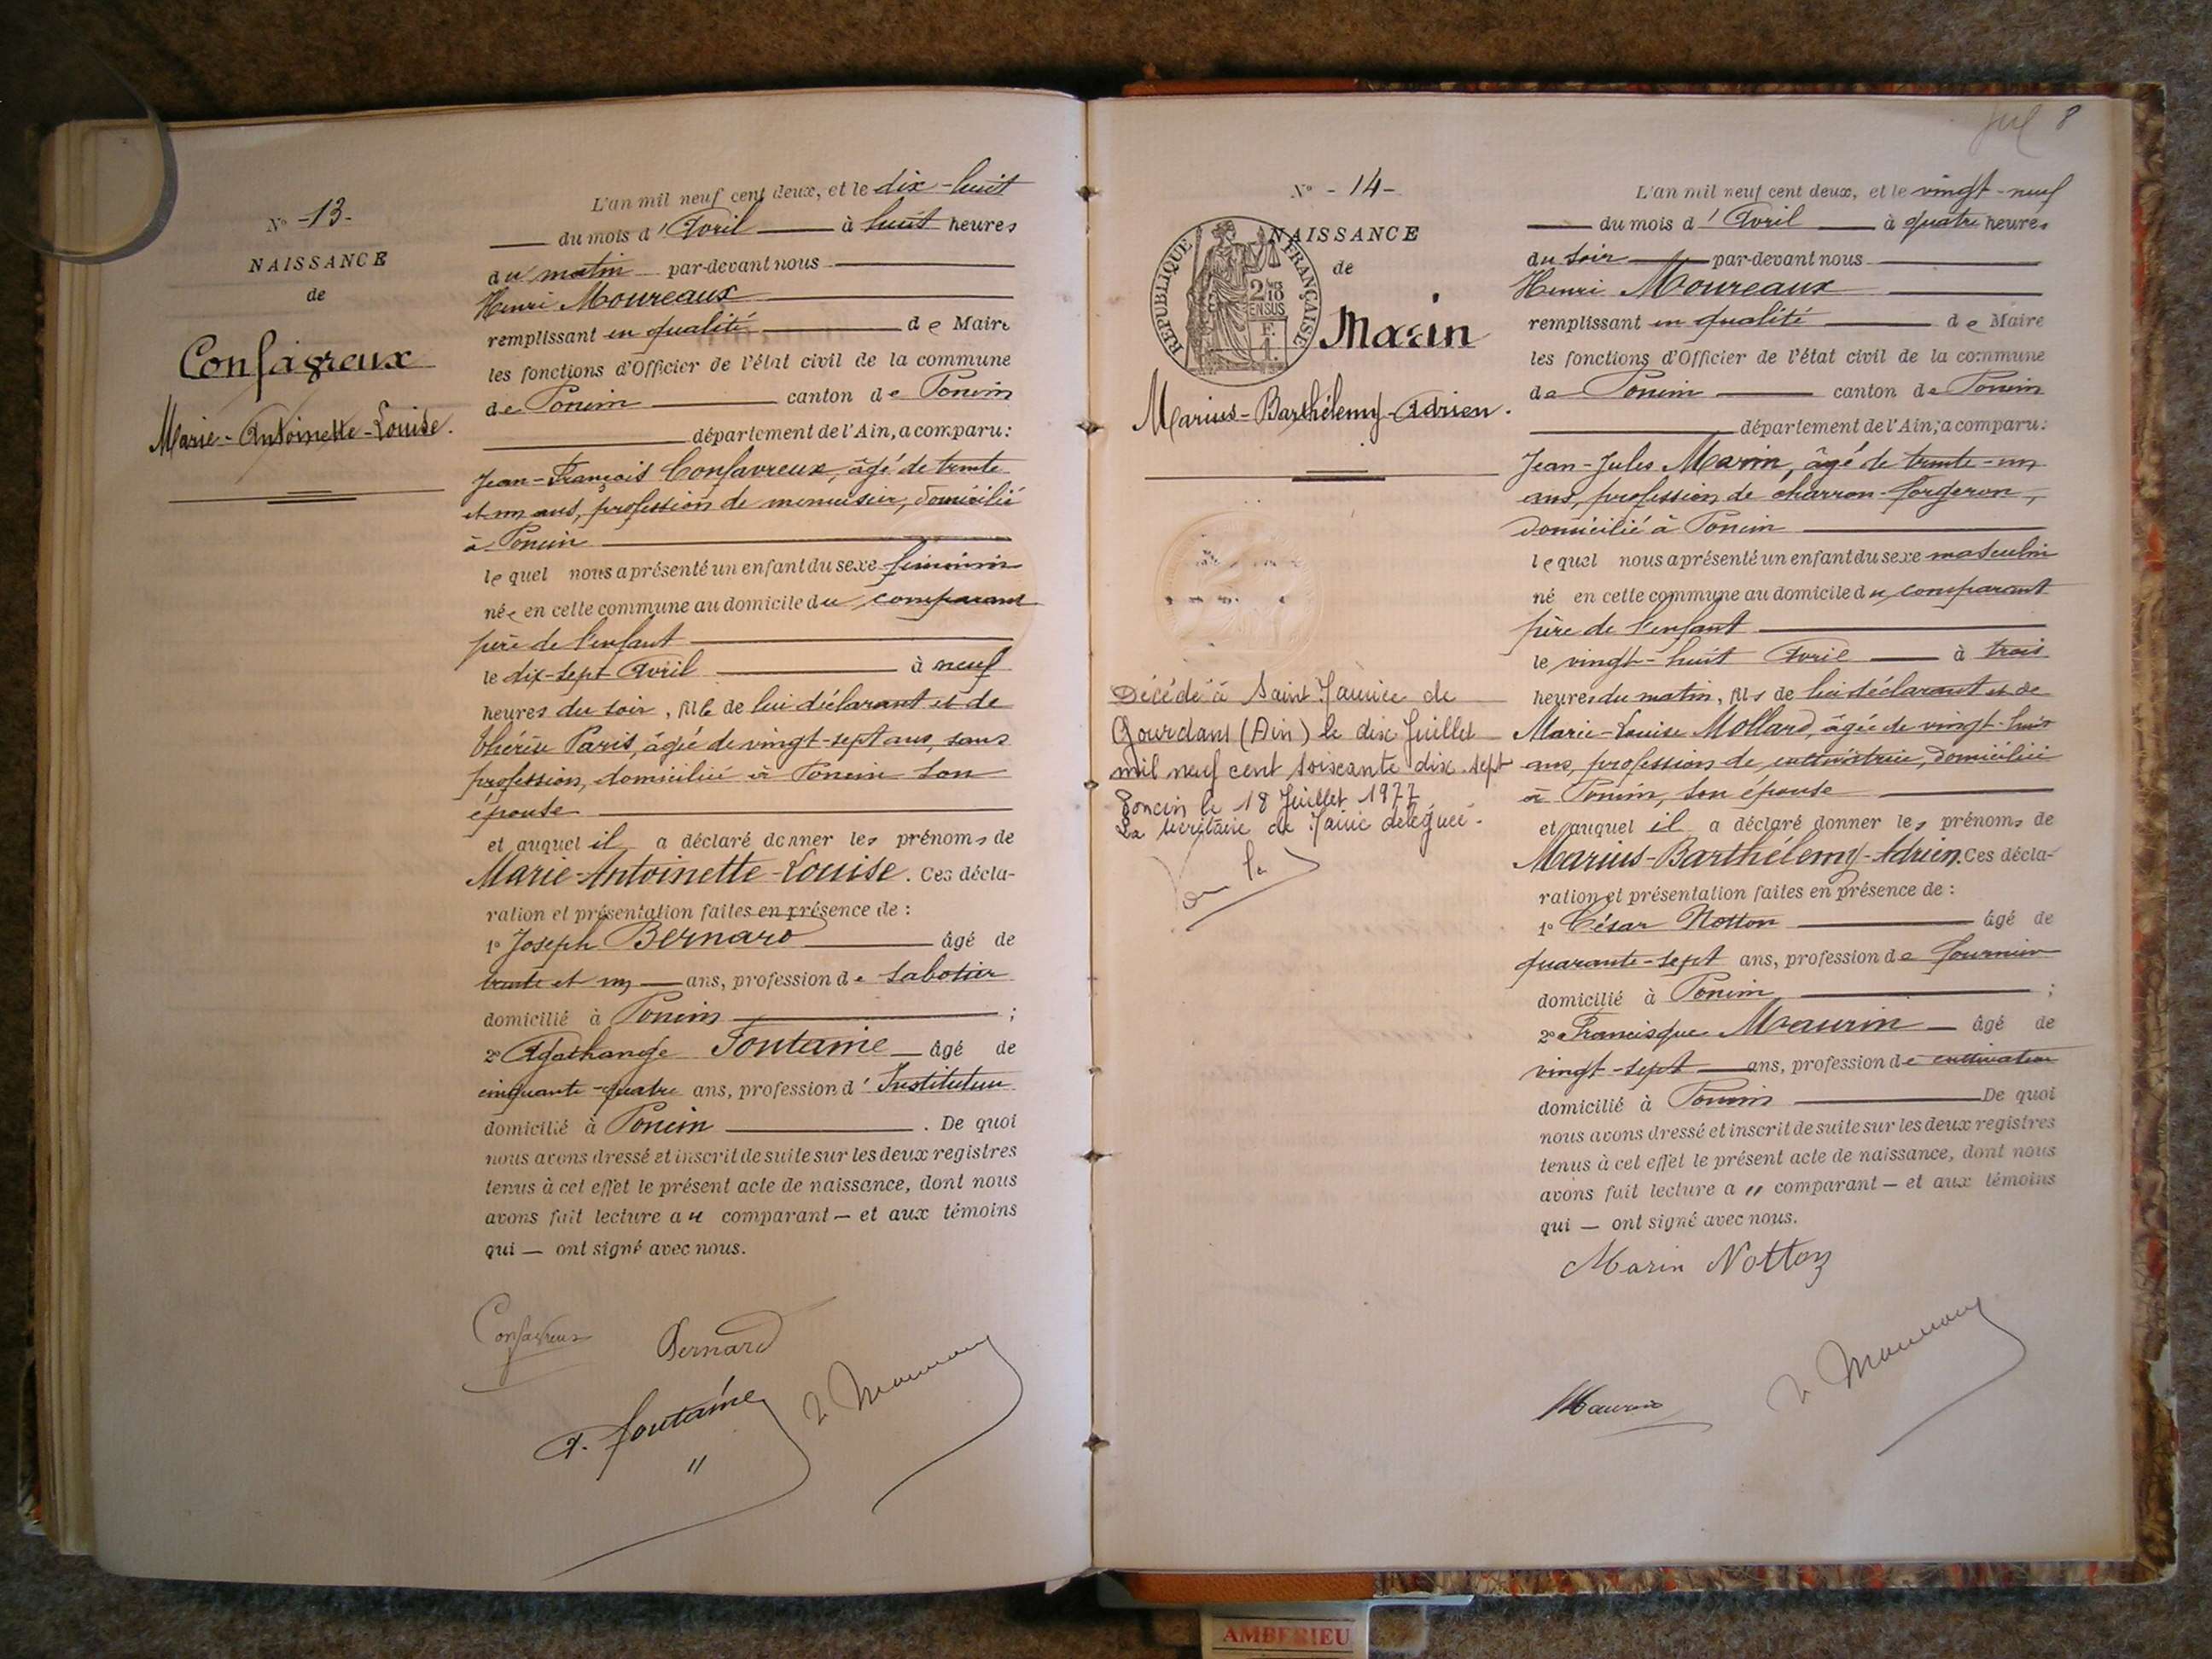 N° -13-
NAISSANCE
de
Confavreux
Marie-Antoinette-Louise.
L'an mil neuf cent deux, et le dix-huit
du mois d'Avril à huit heures
du matin par-devant nous
Henri Moureaux
remplissant en qualité de Maire
les fonctions d'Officier de l'état civil de la commune
de Poncin canton de Poncin
département de l'Ain, a comparu:
Jean-François Confavreux, âgé de trente
et un ans, profession de menuisier, domicilié
à Poncin
lequel nous a présenté un enfant du sexe féminin
née en cette commune au domicile du comparant
père de l'enfant
le dix-sept Avril à neuf
heures du soir, fille de lui déclarant et de
Thérèse Paris, âgée de vingt-sept ans, sans
profession, domiciliée à Poncin son
épouse
et auquel il a déclaré donner les prénoms de
Marie-Antoinette-Louise. Ces décla-
ration et présentation faites en présence de:
1° Joseph Bernard âgé de
trente et un ans, profession de sabotier
domicilié à Poncin ;
2° Agathange Fontaine âgé de
cinquante-quatre ans, profession d'Instituteur
domicilié à Poncin . De quoi
nous avons dressé et inscrit de suite sur les deux registres
tenus à cet effet le présent acte de naissance, dont nous
avons fait lecture au comparant — et aux témoins
qui — ont signé avec nous.
Confavreux
Bernard
A. Fontaine
8
N° -14-
NAISSANCE
de
REPUBLIQUE FRANÇAISE
Marin
Marius-Barthélemy-Adrien.
Décédé à Saint Maurice de
Gourdans (Ain) le dix Juillet
mil neuf cent soixante dix-sept
Poncin le 18 Juillet 1977
La secrétaire de Mairie déléguée.
L'an mil neuf cent deux, et le vingt-neuf
du mois d'Avril à quatre heures
du soir par-devant nous
Henri Moureaux
remplissant en qualité de Maire
les fonctions d'Officier de l'état civil de la commune
de Poncin canton de Poncin
département de l'Ain, a comparu:
Jean-Jules Marin, âgé de trente-un
ans, profession de charron-forgeron,
domicilié à Poncin
lequel nous a présenté un enfant du sexe masculin
né en cette commune au domicile du comparant
père de l'enfant
le vingt-huit Avril à trois
heures du matin, fils de lui déclarant et de
Marie-Louise Mollard, âgée de vingt-huit
ans, profession de cultivatrice, domiciliée
à Poncin, son épouse
et auquel il a déclaré donner les prénoms de
Marius-Barthélemy-Adrien. Ces décla-
ration et présentation faites en présence de:
1° César Notton âgé de
quarante-sept ans, profession de fournier
domicilié à Poncin ;
2° Francisque Maurin âgé de
vingt-sept ans, profession de cultivateur
domicilié à Poncin De quoi
nous avons dressé et inscrit de suite sur les deux registres
tenus à cet effet le présent acte de naissance, dont nous
avons fait lecture au comparant — et aux témoins
qui — ont signé avec nous.
Marin Notton
Maurin
AMBERIEU